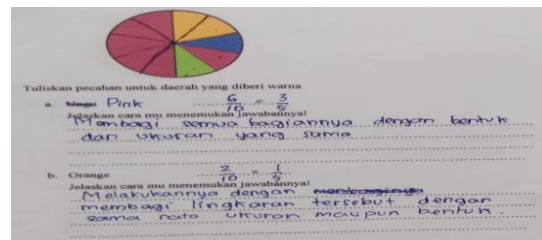 Tuliskan pecahan untuk daerah yang diberi warna
a. Pink 6/10 = 3/5
Jelaskan cara mu menemukan jawabannya!
Membagi semua bagiannya dengan bentuk
dan ukuran yang sama
b. Orange 2/10 = 1/5
Jelaskan cara mu menemukan jawabannya!
Melakukannya dengan
membagi lingkaran tersebut dengan
sama rata ukuran maupun bentuk.